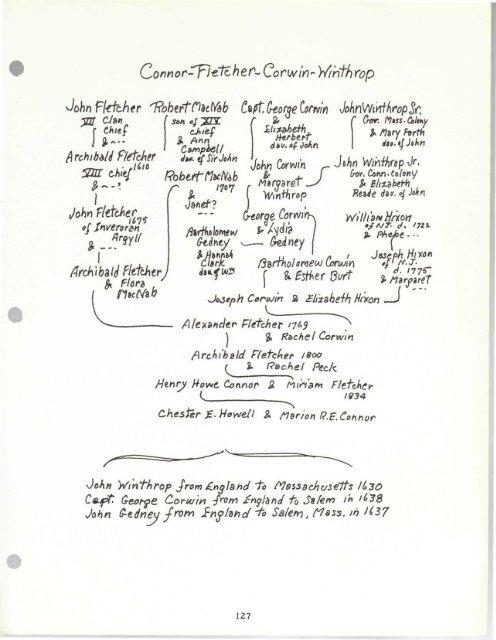 Connor-Fletcher-Corwin-Winthrop
John Fletcher
VII Clan
Chief
& ---
Archibald Fletcher
VIII chief 1610
& --?
John Fletcher
1675
of Inveroran
Argyll
& ---
Archibald Fletcher
& Flora
MacNab
Robert MacNab
son of XIV
chief
& Ann
Campbell
dau. of Sir John
Robert MacNab
1707
&
Janet?
---
Capt. George Corwin
&
Elizabeth
Herbert
dau. of John
John Corwin
&
Margaret
Winthrop
George Corwin
& Lydia
Gedney
Bartholomew
Gedney
& Hannah
Clark
dau of Wm
Bartholomew Corwin
& Esther Burt
John Winthrop Sr.
Gov. Mass. Colony
& Mary Forth
dau. of John
John Winthrop Jr.
Gov. Conn. Colony
& Elizabeth
Reade dau. of John
William Hixon
of N.J. d. 1722
& Phebe ---
Joseph Hixon
of N.J.
d. 1775
& Margaret
---
Joseph Corwin & Elizabeth Hixon
Alexander Fletcher 1769
& Rachel Corwin
Archibald Fletcher 1800
& Rachel Peck
Henry Howe Connor & Miriam Fletcher
1834
Chester E. Howell & Marion R.E. Connor
John Winthrop from England to Massachusetts 1630
Capt. George Corwin from England to Salem in 1638
John Gedney from England to Salem, Mass. in 1637
127